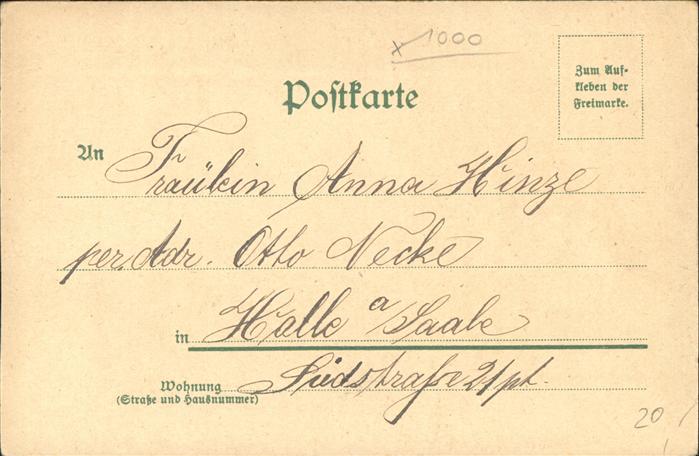 x 1000
Postkarte
Zum Auf-
kleben der
Freimarke.
An Fräulein Anna Hinze
per. Adr. Otto Necke
in Halle a/Saale
Südstraße 21 pt.
Wohnung
(Straße und Hausnummer)
20